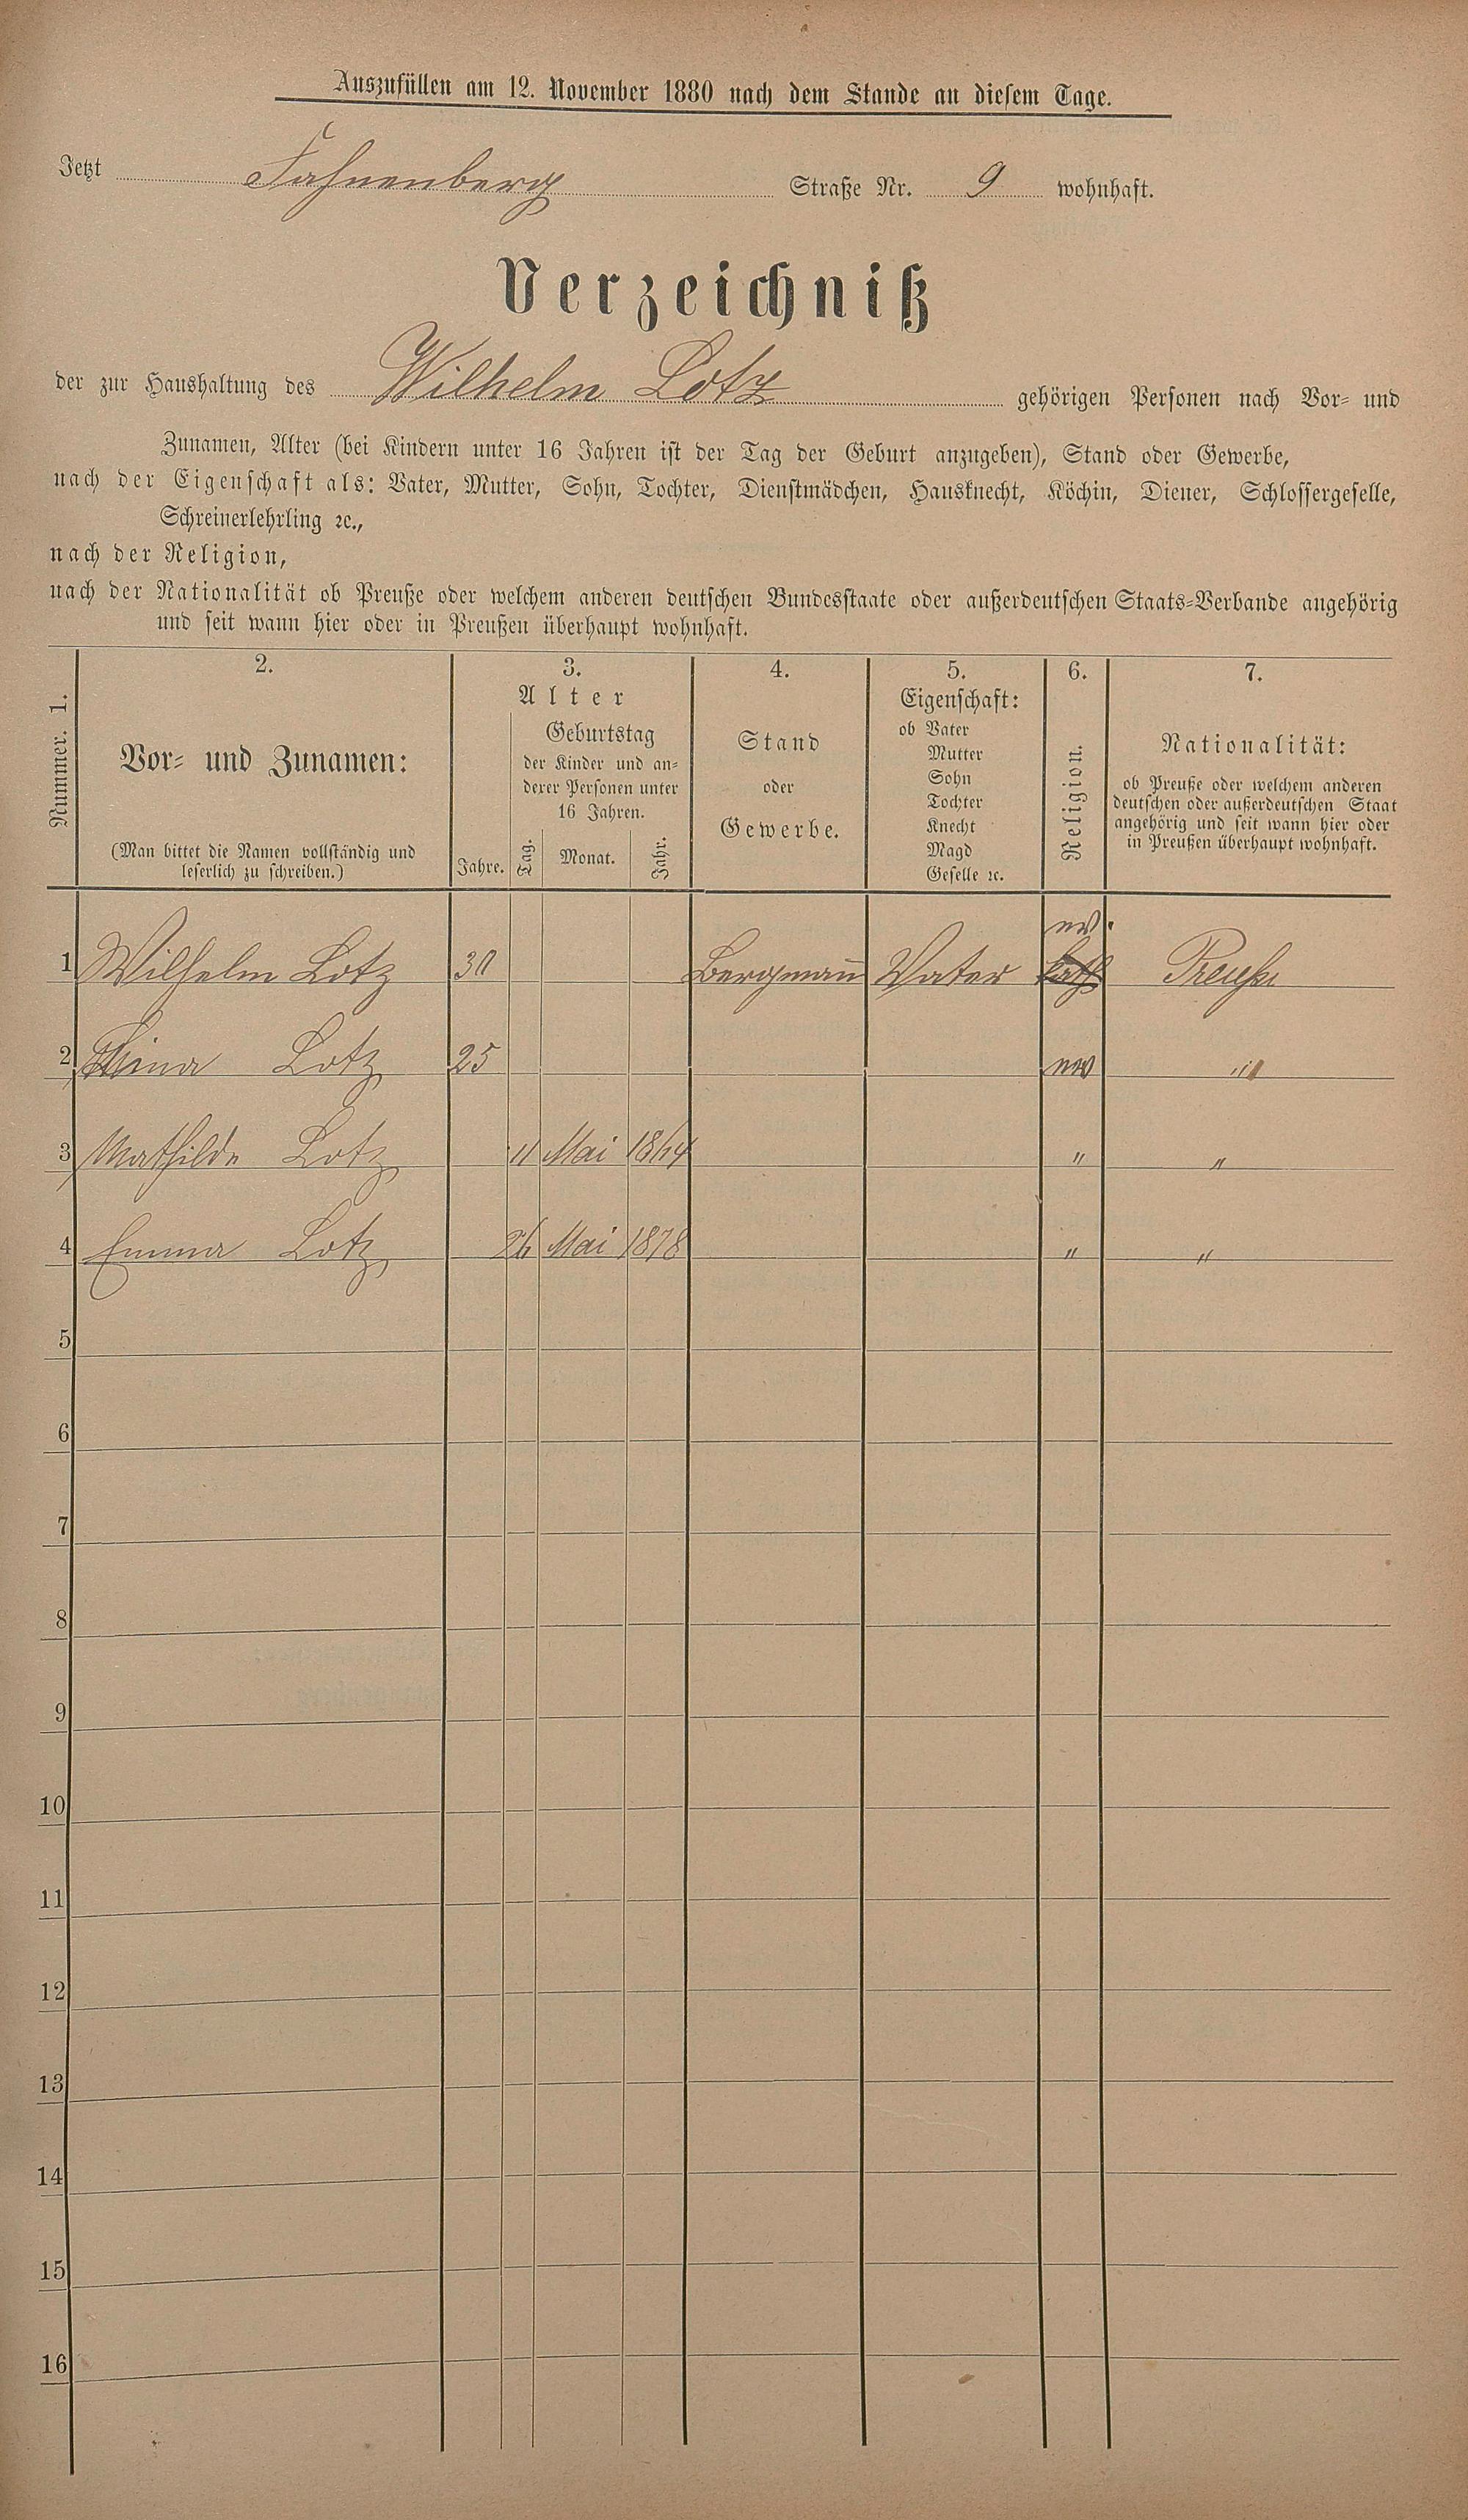 Auszufüllen am 12. November 1880 nach dem Stande an diesem Tage.
Jetzt Fahnenberg Straße Nr. 9 wohnhaft.
Verzeichniß
der zur Haushaltung des Wilhelm Lotz gehörigen Personen nach Vor- und
Zunamen, Alter (bei Kindern unter 16 Jahren ist der Tag der Geburt anzugeben), Stand oder Gewerbe,
nach der Eigenschaft als: Vater, Mutter, Sohn, Tochter, Dienstmädchen, Hausknecht, Köchin, Diener, Schlossergeselle,
Schreinerlehrling ꝛc.,
nach der Religion,
nach der Nationalität ob Preuße oder welchem anderen deutschen Bundesstaate oder außerdeutschen Staats-Verbande angehörig
und seit wann hier oder in Preußen überhaupt wohnhaft.
Nummer. 1.
2.
Vor- und Zunamen:
(Man bittet die Namen vollständig und
leserlich zu schreiben.)
3.
Alter
Jahre.
Geburtstag
der Kinder und an-
derer Personen unter
16 Jahren.
Tag. Monat. Jahr.
4.
Stand
oder
Gewerbe.
5.
Eigenschaft:
ob Vater
Mutter
Sohn
Tochter
Knecht
Magd
Geselle ꝛc.
6.
Religion.
7.
Nationalität:
ob Preuße oder welchem anderen
deutschen oder außerdeutschen Staat
angehörig und seit wann hier oder
in Preußen überhaupt wohnhaft.
1 Wilhelm Lotz 30 Bergmann Vater ev. kath Preuße
2 Lotz 25 ev "
3 Mathilde Lotz 11 Mai " "
4 Emma Lotz 26 Mai 1878 " "
5
6
7
8
9
10
11
12
13
14
15
16